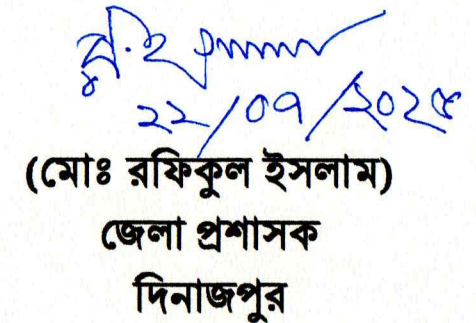 ২২/০৭/২০২৫
(মোঃ রফিকুল ইসলাম)
জেলা প্রশাসক
দিনাজপুর